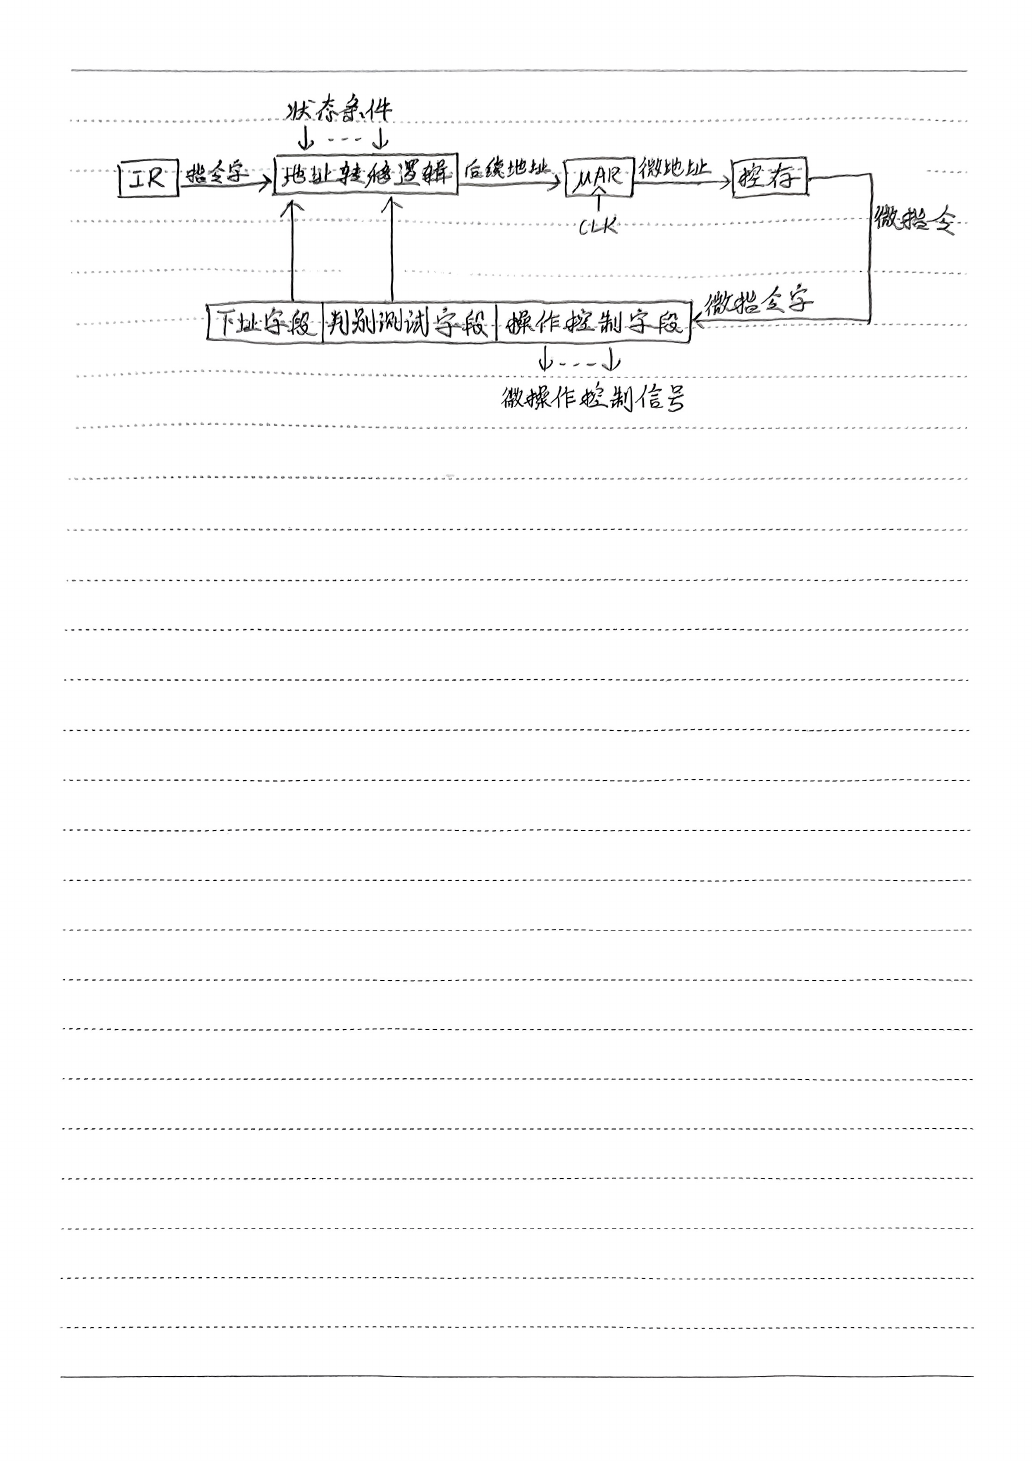 状态条件
IR 指令字 地址转移逻辑 后续地址 μAR 微地址 控存
CLK
微指令
微指令字
下址字段 判别测试字段 操作控制字段
微操作控制信号